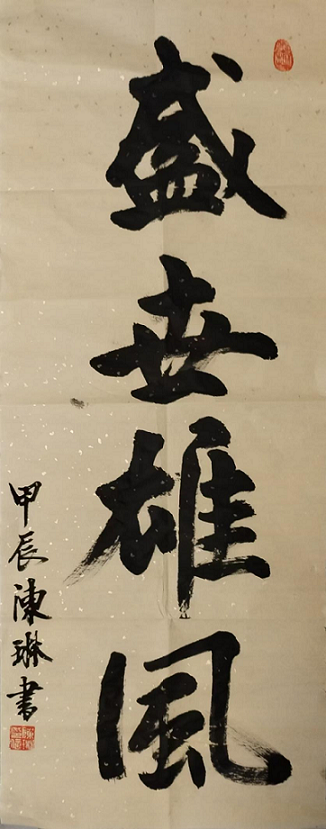 盛世雄風
甲辰陳琳書